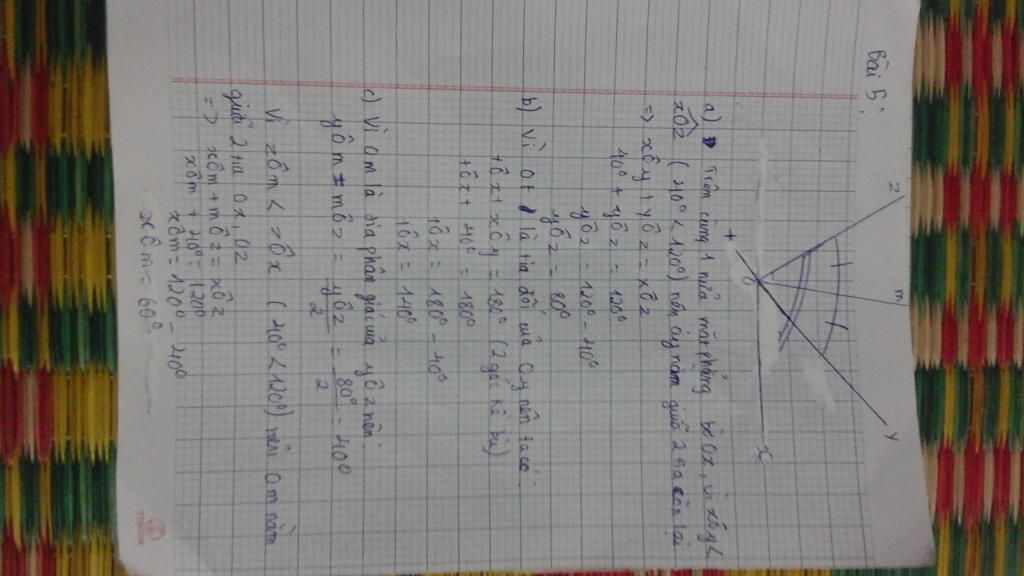 Bài 5:
z
m
y
x
O
t
a) Trên cùng 1 nửa mặt phẳng bờ Ox, vì xÔy <
xÔz (40° < 120°) nên Oy nằm giữa 2 tia còn lại
=> xÔy + yÔz = xÔz
40° + yÔz = 120°
yÔz = 120° - 40°
yÔz = 80°
b) Vì Ot là tia đối của Oy nên ta có:
tÔx + xÔy = 180° (2 góc kề bù)
tÔx + 40° = 180°
tÔx = 180° - 40°
tÔx = 140°
c) Vì Om là tia phân giác của yÔz nên:
yÔm = mÔz = yÔz/2 = 80°/2 = 40°
Vì zÔm < zÔx (40° < 120°) nên Om nằm
giữa 2 tia Ox, Oz
=> xÔm + mÔz = xÔz
xÔm + 40° = 120°
xÔm = 120° - 40°
xÔm = 60°